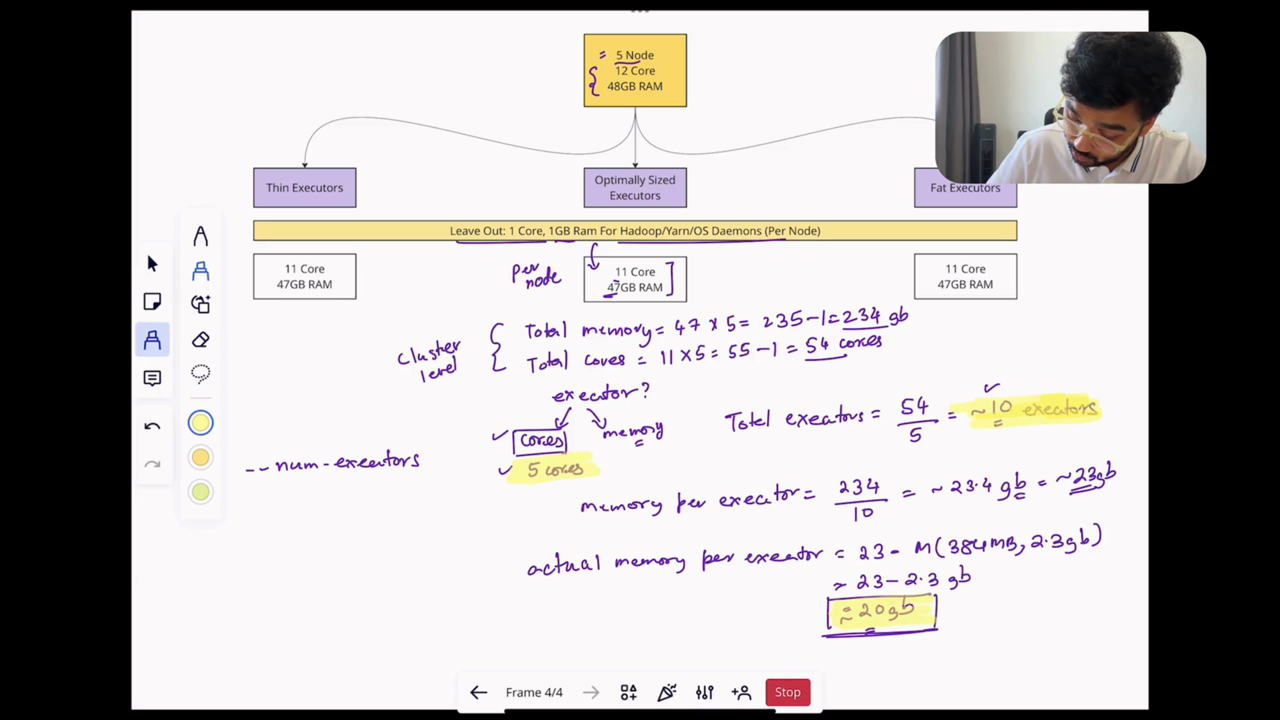 = 5 Node
12 Core
48GB RAM
Thin Executors
Optimally Sized
Executors
Fat Executors
Leave Out: 1 Core, 1GB Ram For Hadoop/Yarn/OS Daemons (Per Node)
11 Core
47GB RAM
Per
node
11 Core
47GB RAM
11 Core
47GB RAM
Cluster
level
Total memory = 47 x 5 = 235-1 = 234 gb
Total cores = 11 x 5 = 55 - 1 = 54 cores
executor?
cores
memory
5 cores
Total executors = 54/5 = ~10 executors
-- num-executors
memory per executor = 234/10 = ~23.4 gb = ~23gb
actual memory per executor = 23 - M(384MB, 2.3gb)
~ 23 - 2.3 gb
≈ 20gb
Frame 4/4
Stop